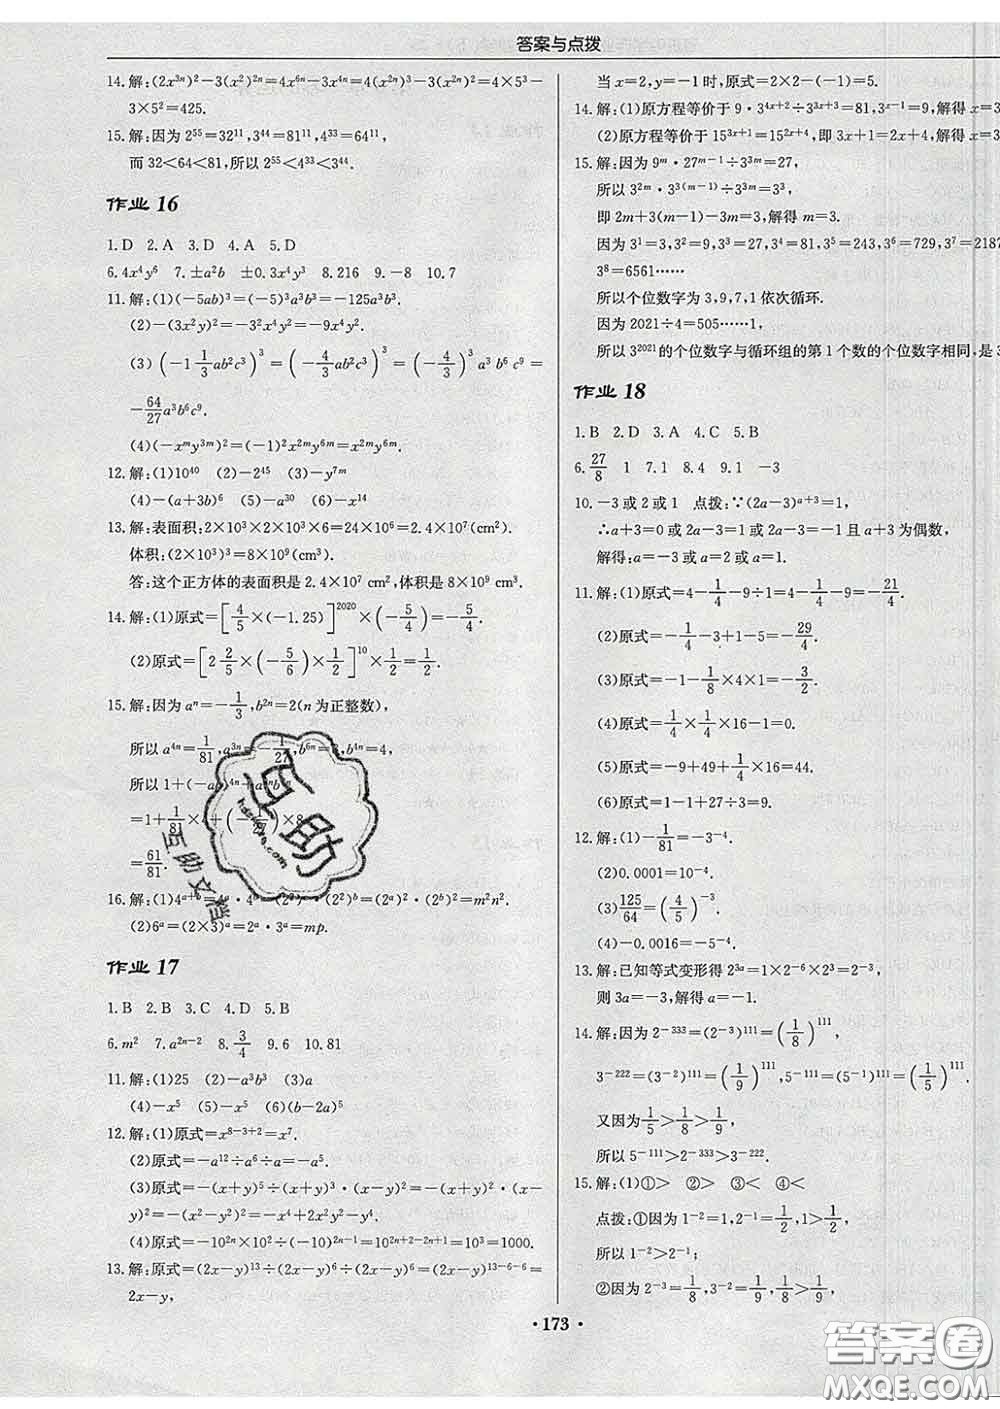 答案与点拨
14.解:(2x³ⁿ)²-3(x²)²ⁿ=4x⁶ⁿ-3x⁴ⁿ=4(x²ⁿ)³-3(x²ⁿ)²=4×5³-
3×5²=425.
15.解:因为 2⁵⁵=32¹¹,3⁴⁴=81¹¹,4³³=64¹¹,
而 32<64<81,所以 2⁵⁵<4³³<3⁴⁴.
作业 16
1.D 2.A 3.D 4.A 5.D
6.4x⁴y⁶ 7.±a²b ±0.3x⁴y³ 8.216 9.-8 10.7
11.解:(1)(-5ab)³=(-5)³a³b³=-125a³b³.
(2)-(3x²y)²=-3²x⁴y²=-9x⁴y².
(3)(-1 1/3 ab²c³)³=(-4/3 ab²c³)³=(-4/3)³a³b⁶c⁹=
-64/27 a³b⁶c⁹.
(4)(-xᵐy³ᵐ)²=(-1)²x²ᵐy⁶ᵐ=x²ᵐy⁶ᵐ.
12.解:(1)10⁴⁰ (2)-2⁴⁵ (3)-y⁷ᵐ
(4)-(a+3b)⁶ (5)-a³⁰ (6)-x¹⁴
13.解:表面积:2×10³×2×10³×6=24×10⁶=2.4×10⁷(cm²).
体积:(2×10³)³=8×10⁹(cm³).
答:这个正方体的表面积是 2.4×10⁷ cm²,体积是 8×10⁹ cm³.
14.解:(1)原式=[4/5×(-1.25)]²⁰²⁰×(-5/4)=-5/4.
(2)原式=[2 2/5×(-5/6)×1/2]¹⁰×1/2=1/2.
15.解:因为 aⁿ=-1/3,b²ⁿ=2(n 为正整数),
所以 a⁴ⁿ=1/81,a³ⁿ=-1/27,b⁶ⁿ=8,b⁴ⁿ=4,
所以 1+(-ab)⁴ⁿ+a³ⁿb⁶ⁿ
=1+1/81×4+(-1/27)×8
=61/81.
16.解:(1)4ᵃ⁺ᵇ=4ᵃ·4ᵇ=(2²)ᵃ·(2²)ᵇ=(2ᵃ)²·(2ᵇ)²=m²n².
(2)6ᵃ=(2×3)ᵃ=2ᵃ·3ᵃ=mp.
作业 17
1.B 2.B 3.C 4.D 5.B
6.m² 7.a²ⁿ⁻² 8.3/4 9.6 10.81
11.解:(1)25 (2)-a³b³ (3)a
(4)-x⁵ (5)-x⁵ (6)(b-2a)⁵
12.解:(1)原式=x⁸⁻³⁺²=x⁷.
(2)原式=-a¹²÷a⁶÷a=-a⁵.
(3)原式=-(x+y)⁵÷(x+y)³·(x-y)²=-(x+y)²·(x-
y)²=-(x²-y²)²=-x⁴+2x²y²-y⁴.
(4)原式=-10²ⁿ×10²÷(-10)²ⁿ⁻¹=10²ⁿ⁺²⁻²ⁿ⁺¹=10³=1000.
13.解:原式=(2x-y)¹³÷(2x-y)⁶÷(2x-y)⁶=(2x-y)¹³⁻⁶⁻⁶=
2x-y,
当 x=2,y=-1 时,原式=2×2-(-1)=5.
14.解:(1)原方程等价于 9·3⁴ˣ⁺²÷3³ˣ⁺³=81,3ˣ⁻¹=9,解得 x=3
(2)原方程等价于 15³ˣ⁺¹=15²ˣ⁺⁴,即 3x+1=2x+4,解得 x=
15.解:因为 9ᵐ·27ᵐ⁻¹÷3³ᵐ=27,
所以 3²ᵐ·3³⁽ᵐ⁻¹⁾÷3³ᵐ=3³,
即 2m+3(m-1)-3m=3,解得 m=3.
因为 3¹=3,3²=9,3³=27,3⁴=81,3⁵=243,3⁶=729,3⁷=2187
3⁸=6561……
所以个位数字为 3,9,7,1 依次循环.
因为 2021÷4=505……1,
所以 3²⁰²¹的个位数字与循环组的第 1 个数的个位数字相同,是 3
作业 18
1.B 2.D 3.A 4.C 5.B
6.27/8 1 7.1 8.4 9.1 -3
10.-3 或 2 或 1 点拨:∵(2a-3)ᵃ⁺³=1,
∴a+3=0 或 2a-3=1 或 2a-3=-1 且 a+3 为偶数,
解得:a=-3 或 a=2 或 a=1.
11.解:(1)原式=4-1/4-9÷1=4-1/4-9=-21/4.
(2)原式=-1/4-3+1-5=-29/4.
(3)原式=-1-1/8×4×1=-3/2.
(4)原式=1/4×1/4×16-1=0.
(5)原式=-9+49+1/4×16=44.
(6)原式=1-1+27÷3=9.
12.解:(1)-1/81=-3⁻⁴.
(2)0.0001=10⁻⁴.
(3)125/64=(4/5)⁻³.
(4)-0.0016=-5⁻⁴.
13.解:已知等式变形得 2³ᵃ=1×2⁻⁶×2³=2⁻³,
则 3a=-3,解得 a=-1.
14.解:因为 2⁻³³³=(2⁻³)¹¹¹=(1/8)¹¹¹,
3⁻²²²=(3⁻²)¹¹¹=(1/9)¹¹¹,5⁻¹¹¹=(5⁻¹)¹¹¹=(1/5)¹¹¹.
又因为1/5>1/8>1/9,
所以 5⁻¹¹¹>2⁻³³³>3⁻²²².
15.解:(1)①> ②> ③< ④<
点拨:①因为 1⁻²=1,2⁻¹=1/2,1>1/2,
所以 1⁻²>2⁻¹;
②因为 2⁻³=1/8,3⁻²=1/9,1/8>1/9,
·173·
互助
互助文档
答案圈
MXQE.COM